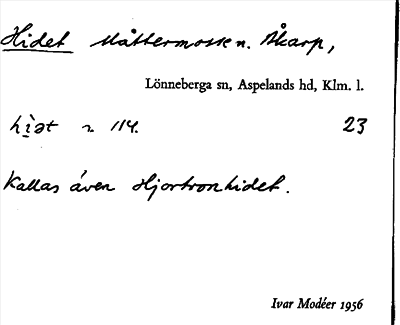 Hidet slåttermosse n. Åkarp,
Lönneberga sn, Aspelands hd, Klm. l.
hi̱ət n 114. 23
Kallas även Hjortronhidet.
Ivar Modéer 1956